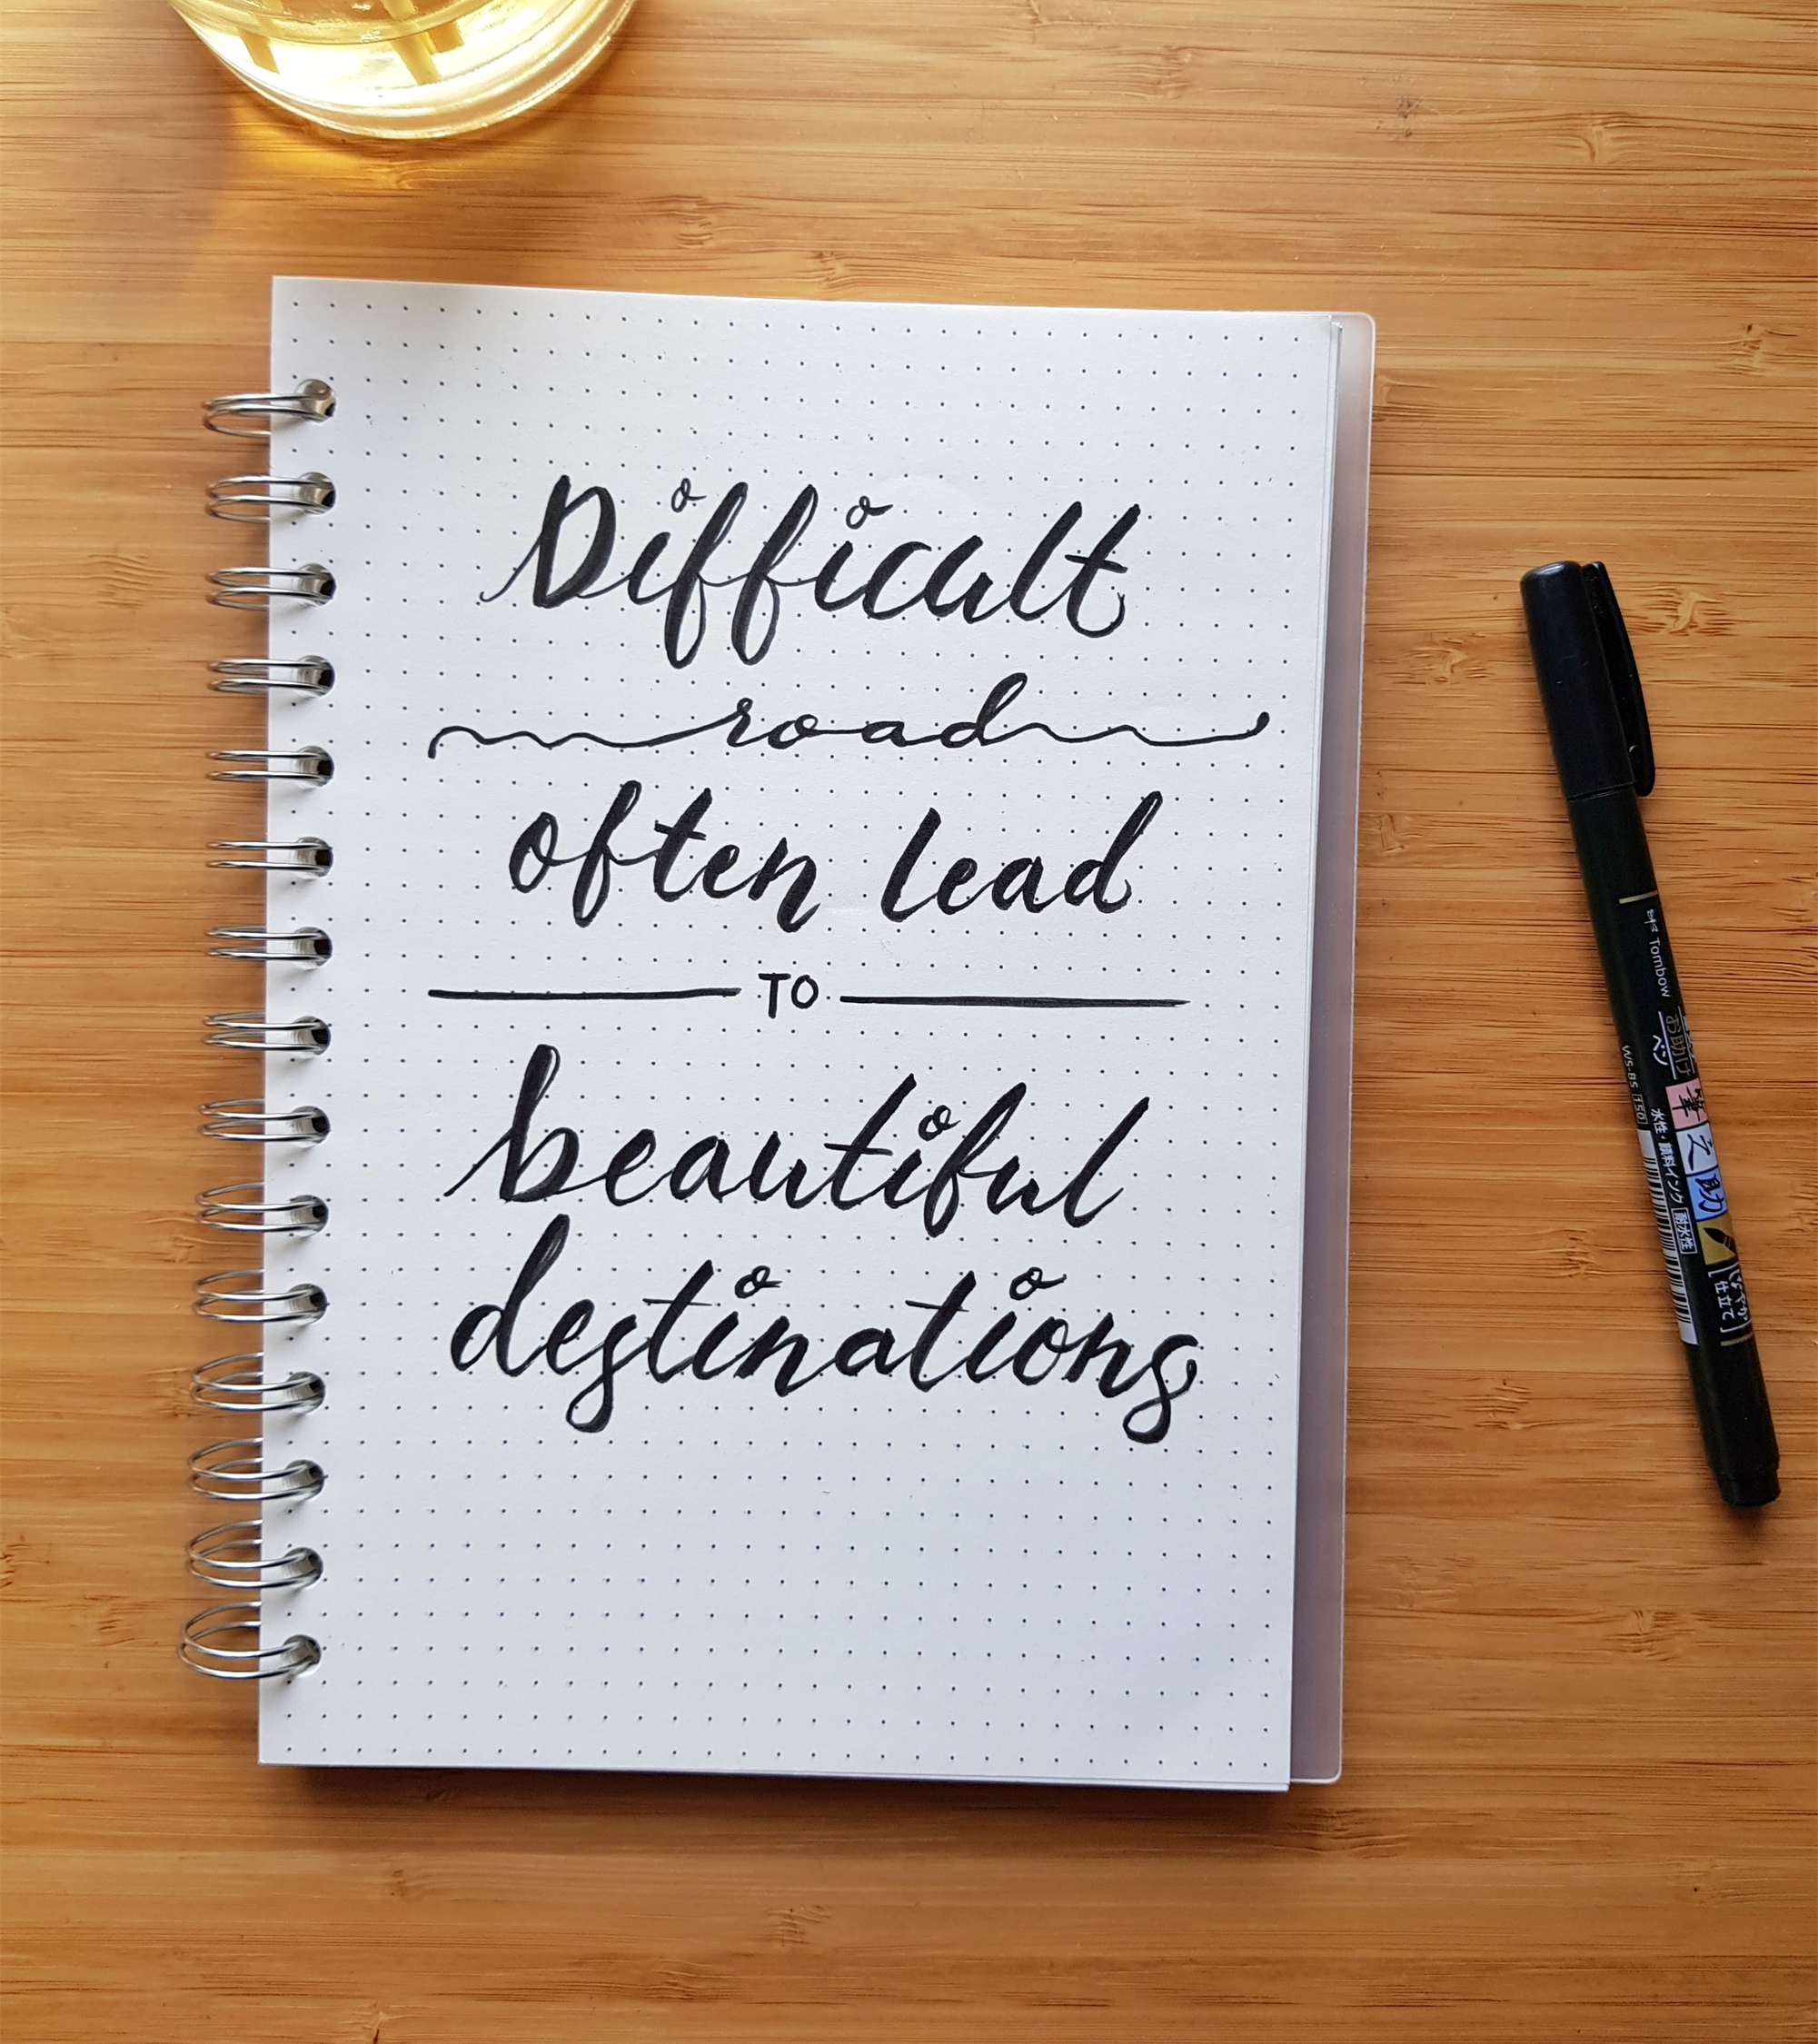 Difficult
road
often lead
TO
beautiful
destinations
Tombow
お助け
ペン
WS-BS 150
水性・顔料インク 耐水性
筆之助
仕立て